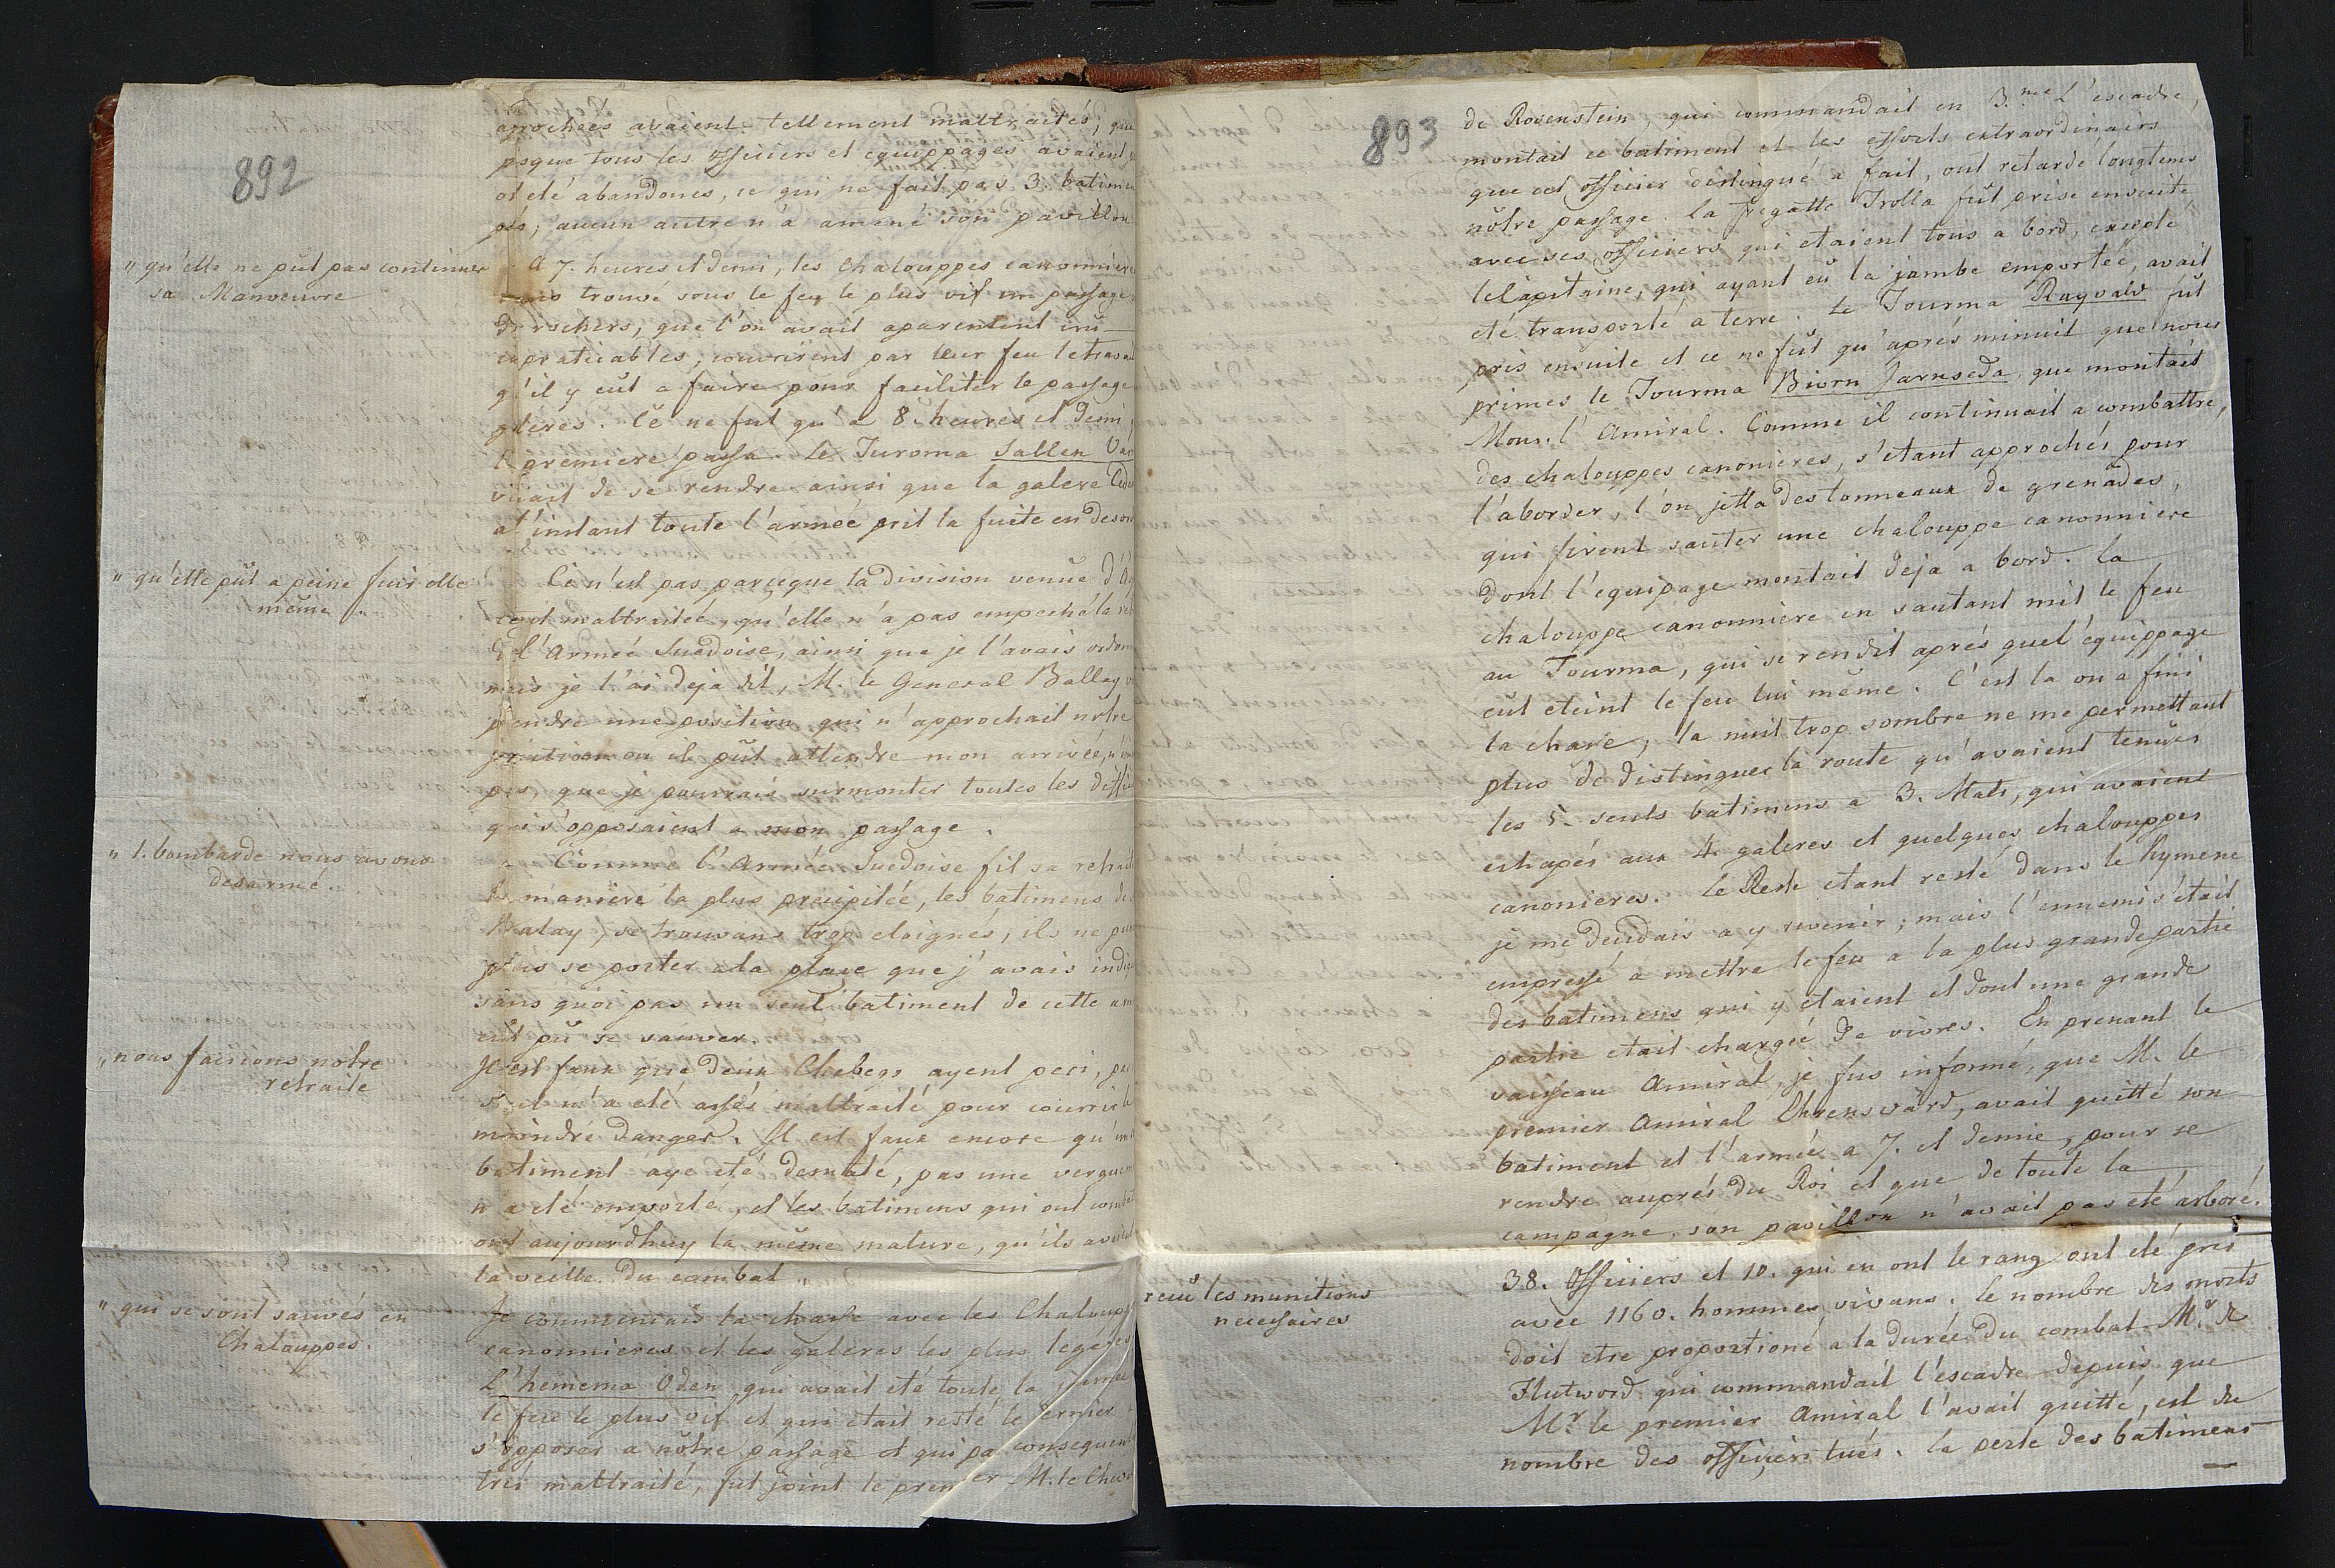 892
aprochées avaient tellement maltraités, que
psque tous les officiers et equippages avaient
et eté abandonés, ce qui ne fait pas 3. batimens
pris, aucun autre n'a amené son pavillon
" qu'elle ne put pas continuer
sa Manoeuvre
A 7. heures et demi, les chalouppes canonnieres
trouvé sous le feu le plus vif un passage
de rochers, que l'on avait aparement crû
inpraticables, couvrirent par leur feu le travail
q'il y eut a faire pour faciliter le passage
galeres. Ce ne fut qu'a 8. heures et demi
la premiere passa. Le Turoma Sallen Var
venait de se rendre ainsi que la galere
al'instant toute l'armeé prit la fuite en
" qu'elle pût a peine fuir elle
même.
Ce n'est pas parceque la division venue
etait maltraiteé, qu'elle n'a pas empeché la
de l'Armeé Suedoise, ainsi que je l'avais ordonné
mais je l'ai deja dit, M. le General Ballay
prendre une position qui n'approchait notre
jonction ou il put attendre mon arrivée,
pas, que je pourrais surmonter toutes les
qui s'opposaient a mon passage.
" 1. bombarde nous avons
desarmé.
Comme l'Armée Suedoise fit sa retraite
de maniere la plus precipiteé, les batimens de
Balay, se trouvans trop eloignés, ils ne
plus se porter a la place que j'avais indiqué
sans quoi pas un seul batiment de cette
eut pu se sauver.
" nous faisions notre
retraite
Il est faux que deux Chebegs ayent peri,
n'a eté assés maltraité pour courrir le
moindre danger. Il est faux encore qu'un
batiment aye eté dematé, pas une vergue
n'a eté emporté, et les batimens qui ont combattu
ont aujourdhuy la même mature, qu'ils avaient
la veille du combat.
" qui se sont sauvés en
Chalouppes.
Je commencais la chasse avec les Chalouppes
canonnieres et les galeres les plus legeres
L'hemema Oden, qui avait eté toute la journeé
le feu le plus vif et qui etait resté le dernier
s'opposer a nôtre passage et qui par consequent
tres maltraité, fut joint le premier M. le Cheval
893
de Rosenstein, qui commandait en 3.me l'escadre,
montait ce batiment et les efforts extraordinairs
que cet officier distingué a fait, ont retardé longtems
nôtre passage. la fregatte Trolla fût prise ensuite
avec ses officiers qui etaient tous a bord, excepté
le Capitaine, qui ayant eû la jambe emporteé, avait
eté transporté a terre. le Tourma Rayvald fut
pris ensuite et ce ne fut qu'aprés minuit que nous
primes le Tourma Biorn Jarnseda, que montait
Mons. l'Amiral. Comme il continuait a combattre,
des chalouppes canonieres, s'etant approchés pour
l'aborder, l'on jetta des tonneaux de grenades,
qui firent sauter une chalouppe canonniere
dont l'equipage montait deja a bord. la
chalouppe canonniere en sautant mit le feu
au Tourma, qui se rendit aprés quel'équippage
eut eteint le feu lui même. C'est la ou a fini
la chasse, la nuit trop sombre ne me permettant
plus de distinguer la route qu'avaient tenues
les 5. seuls batimens a 3. Mats, qui avaient
echapés aux 4. galeres et quelques chalouppes
canonieres. Le Reste etant resté dans le Kymene
je me decidais a y revenir; mais l'ennemi s'etait
empressé a mettre le feu a la plus grande partie
des batimens qui y etaient et dont une grande
partie etait chargée de vivres. En prenant le
vaisseau Amiral, je fus informé, que M. le
premier Amiral Ehrensvärd, avait quitté son
batiment et l'armée a 7. et demie, pour se
rendre auprés du Roi et que de toute la
campagne, son pavillon n'avait pas eté arboré.
recu les munitions
necessaires
38. Officiers et 10. qui en ont le rang ont eté pris
avec 1160. hommes vivans. le nombre des morts
doit etre proportioné a la durée du combat. Mr. de
Flutword qui commandait l'escadre depuis que
Mr. le premier Amiral l'avait quitté, est du
nombre des officiers tués. la perte des batimens